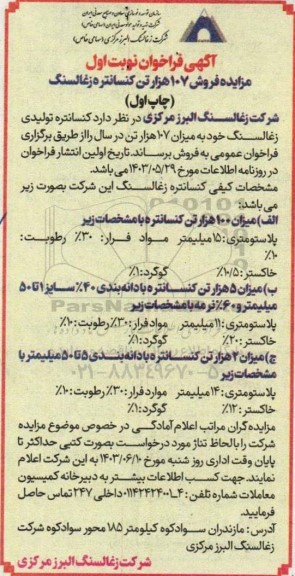 سازمان توسعه و نوسازی معادن و صنایع معدنی ایران
شرکت تهیه و تولید مواد معدنی ایران (سهامی خاص)
شرکت زغالسنگ البرز مرکزی (سهامی خاص)
آگهی فراخوان نوبت اول
مزایده فروش ۱۰۷ هزار تن کنسانتره زغالسنگ
(چاپ اول)
شرکت زغالسنگ البرز مرکزی در نظر دارد کنسانتره تولیدی
زغالسنگ خود به میزان ۱۰۷ هزار تن در سال را از طریق برگزاری
فراخوان عمومی به فروش برساند. تاریخ اولین انتشار فراخوان
در روزنامه اطلاعات مورخ ۱۴۰۳/۰۵/۲۹ می‌باشد.
مشخصات کیفی کنسانتره زغالسنگ این شرکت بصورت زیر
می‌باشد:
الف) میزان ۱۰۰ هزار تن کنسانتره با مشخصات زیر
پلاستومتری: ۱۵ میلیمتر مواد فرار: ۳۰٪ رطوبت:
۱۰٪
خاکستر: ۱۰/۵٪ گوگرد: ۱٪
ب) میزان ۵ هزار تن کنسانتره با دانه‌بندی ۴۰٪ سایز ۱ تا ۵۰
میلیمتر و ۶۰٪ نرمه با مشخصات زیر
پلاستومتری: ۱۱ میلیمتر مواد فرار: ۳۰٪ رطوبت: ۱۰٪
خاکستر: ۲۰٪ گوگرد: ۱٪
ج) میزان ۲ هزار تن کنسانتره با دانه‌بندی ۵ تا ۵۰ میلیمتر با
مشخصات زیر
پلاستومتری: ۱۴ میلیمتر مواد فرار: ۳۰٪ رطوبت: ۱۰٪
خاکستر: ۱۲٪ گوگرد: ۱٪
مزایده گران مراتب اعلام آمادگی در خصوص موضوع مزایده
شرکت را بالحاظ تناژ مورد درخواست بصورت کتبی حداکثر تا
پایان وقت اداری روز شنبه مورخ ۱۴۰۳/۰۶/۱۰ به این شرکت اعلام
نمایند. جهت کسب اطلاعات بیشتر به دبیرخانه کمیسیون
معاملات شماره تلفن: ۴-۰۱۱۴۲۴۲۴۰۰۱ داخلی ۲۴۷ تماس حاصل
فرمایید.
آدرس: مازندران سوادکوه کیلومتر ۱۸۵ محور سوادکوه شرکت
زغالسنگ البرز مرکزی
شرکت زغالسنگ البرز مرکزی
۰۲۱-۸۸۳۴۹۶۷۰